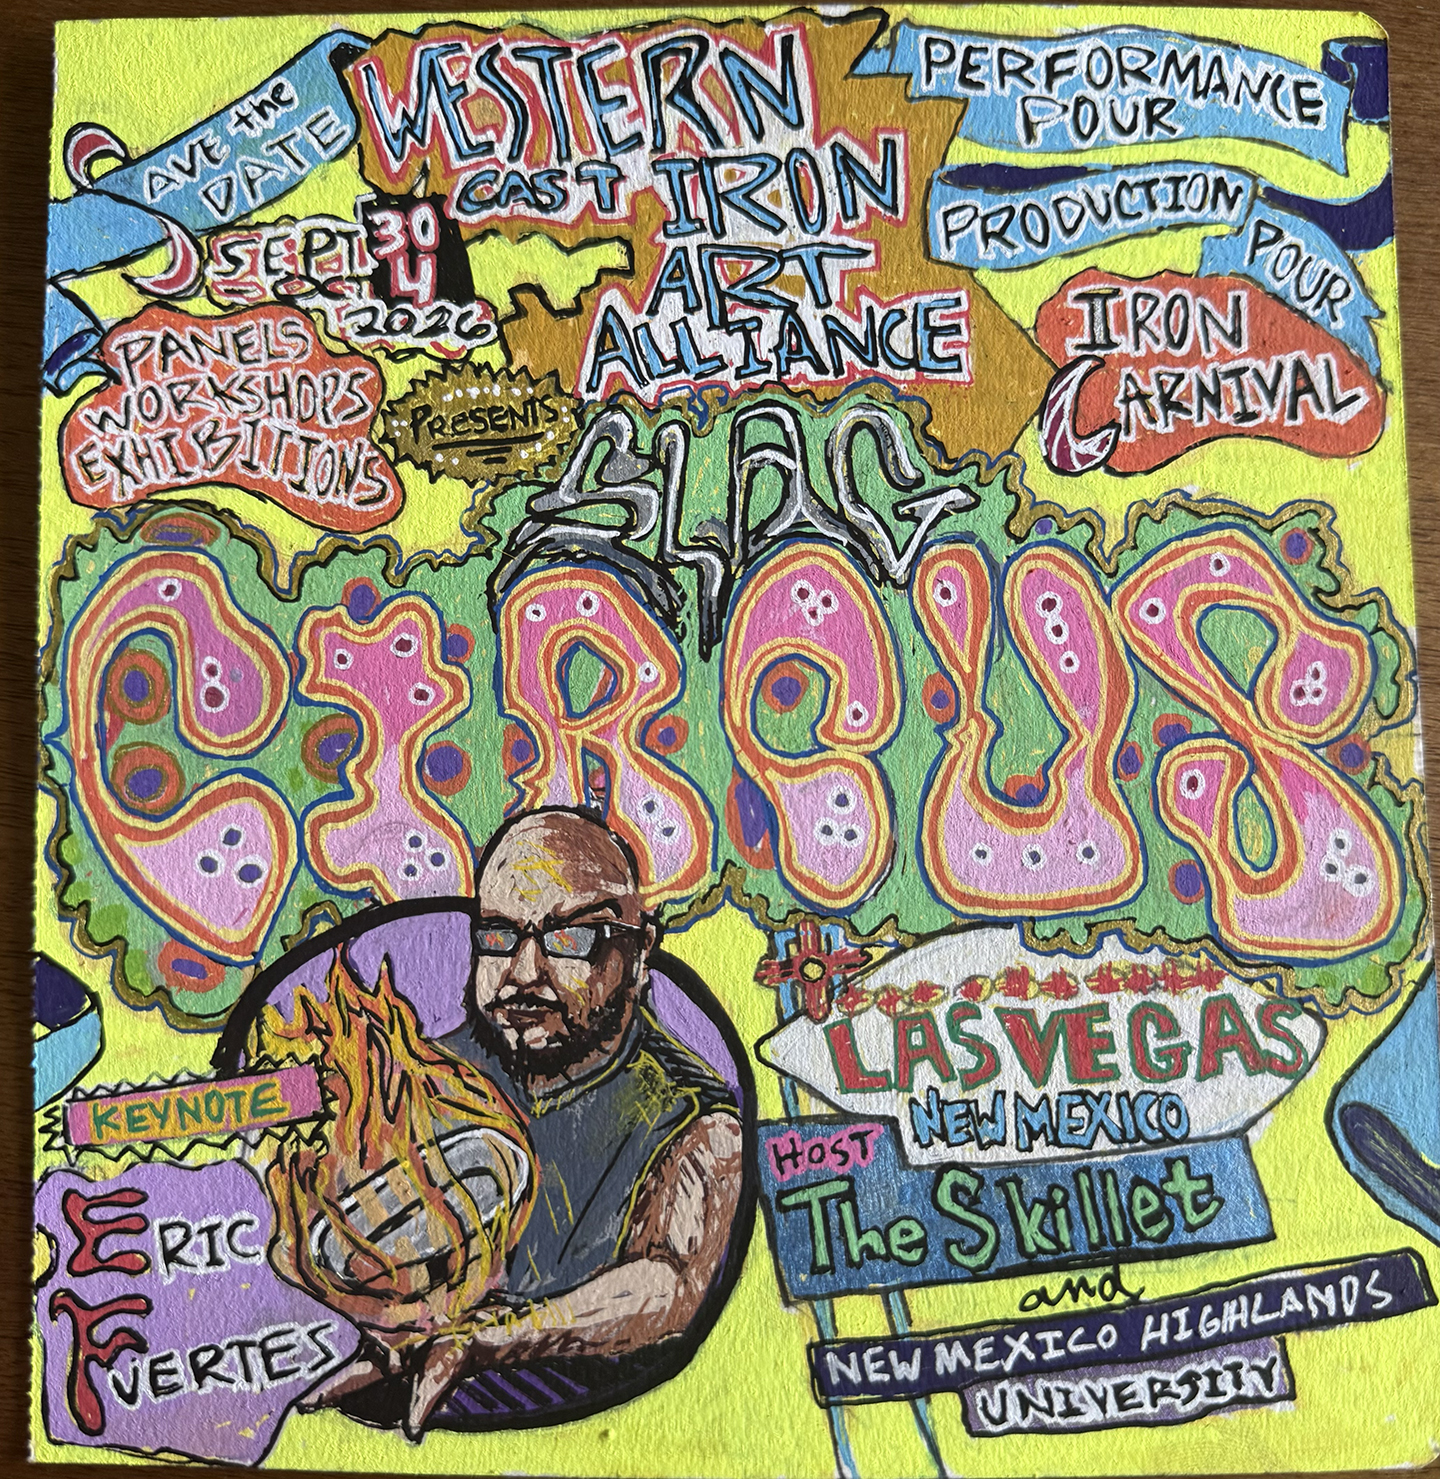 SAVE the
DATE
SEPT 30
OCT 4
2026
WESTERN
CAST IRON
ART
ALLIANCE
PERFORMANCE
POUR
PRODUCTION
POUR
IRON
CARNIVAL
PANELS
WORKSHOPS
EXHIBITIONS
PRESENTS
SLAG
CIRCUS
KEYNOTE
ERIC
FUERTES
LAS VEGAS
NEW MEXICO
HOST
The Skillet
and
NEW MEXICO HIGHLANDS
UNIVERSITY